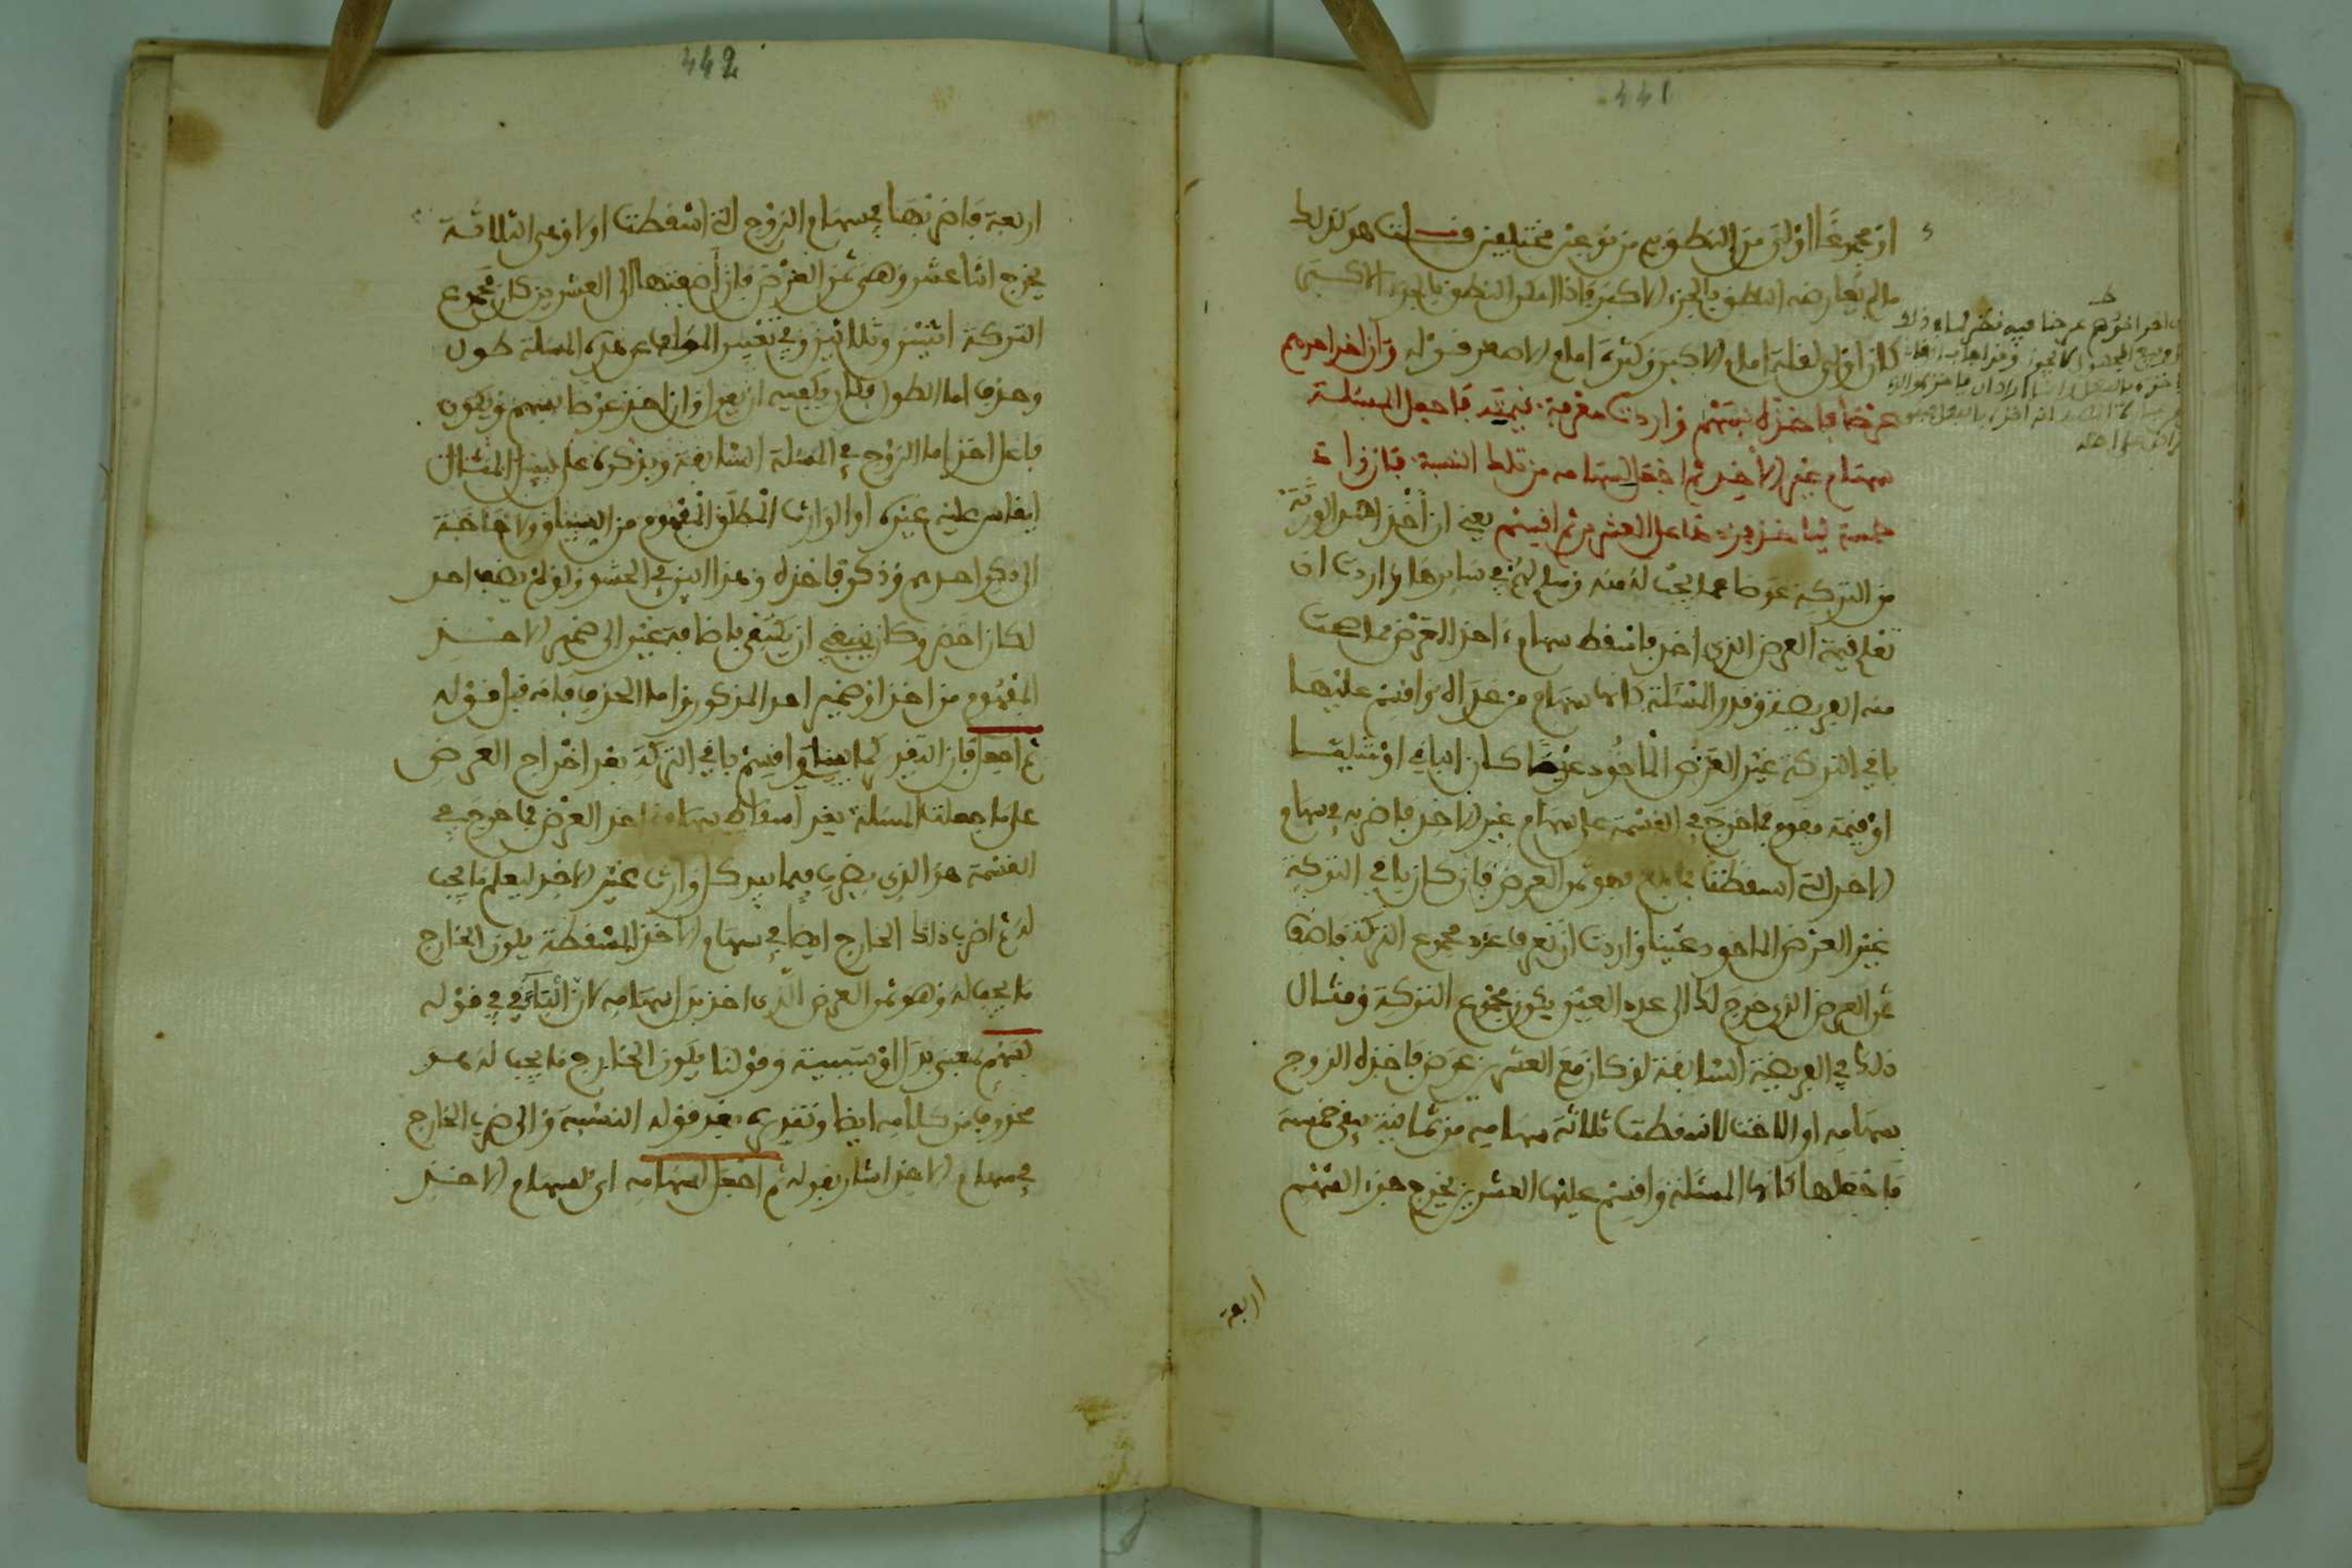 441
او مجموعا اولى من النطق به من نوعين مختلفين قلت هو كذلك
ما لم يعارضه النطق بالجزء الاكبر فاذا امكن النطق بالجزء الاكبر
كان اولى لقلة امام الاكبر وكثرة امام الاصغر قوله وان اخذ احدهم
عرضا فاخذه بسهمه واردت معرفة قيمته فاجعل المسئلة
سهام غير الاخذ ثم اجعل لسهامه من تلك النسبة فان زاد
خمسة ليأخذ فزدها على العشرين ثم اقسم يعني ان اخذ احد الورثة
من التركة عوضا عما يجب له منه وسلم لهم في سايرها واردت ان
تعلم قيمة العرض الذي اخذ فاسقط سهام اخذ العرض مما صحت
منه الفريضة وقدر المسئلة كانها سهام من عداه واقسم عليها
باقي التركة غير العرض الماخوذ عينا كان الباقي او مثليا
او قيمة مقوم فما خرج في القسمة على سهام غير الاخذ فاضربه في سهام
الاخذ التي اسقطتها فما بلغ فهو ثمن العرض فان كان باقي التركة
غير العرض الماخوذ عينا واردت ان تعرف عدد مجموع التركة فاضف
ثمن العرض الذي خرج لك الى عدد العين يكون مجموع التركة ومثال
ذلك في الفريضة السابقة لو كان مع العشرين عرض فاخذه الزوج
بسهامه او الاخت لاسقطت ثلاثة سهامه من ثمانية يبقى خمسة
فاجعلها كانها المسئلة واقسم عليها العشرين يخرج جزء السهم
اربعة
442
اربعة فاضربها في سهام الزوج التي اسقطت اولا وهي الثلاثة
يخرج اثنا عشر وهي ثمن العرض فان اضفتها الى العشرين كان مجموع
التركة اثنين وثلاثين وفي تفسير المؤلف عن هذه المسئلة طول
وحذف اما الطول فكان يكفيه ان يقول وان اخذ عرضا بسهمه ويكون
فاعل اخذ اما الزوج في المسئلة السابقة ويذكره على سبيل المثال
ليقاس عليه غيره او الوارث المطلق المفهوم من السياق ولا حاجة
الى ذكر احدهم وذكر فاخذه وهذا ابين في الحشو ولو لم يضف احد
لكان اخصر وكان ينبغي ان يكتفي باضافة غير الى ضمير الاخذ
المفهوم من اخذ او ضمير احد المذكور واما الحذف فانه قبل قوله
ثم اجعل فان التقدير كما بينا واقسم باقي التركة بعد اخراج العرض
على ما جعلته المسئلة بعد اسقاط سهام اخذ العرض فما خرج في
القسمة هو الذي يضرب فيما بيد كل وارث غير الاخذ ليعلم ما يجب
له ثم اضرب ذلك الخارج ايضا في سهام الاخذ المسقطة يكون الخارج
ما يجب له وهو ثمن العرض الذي اخذ بدل سهامه لان الباء في قوله
بسهم بمعنى بدل او سببية وقولنا يكون الخارج ما يجب له هو
محذوف من كلامه ايضا وتقديره بعد قوله النسبة والى ضرب الخارج
في سهام الاخذ اشار بقوله ثم اجعل لسهامه اي لسهام الاخذ